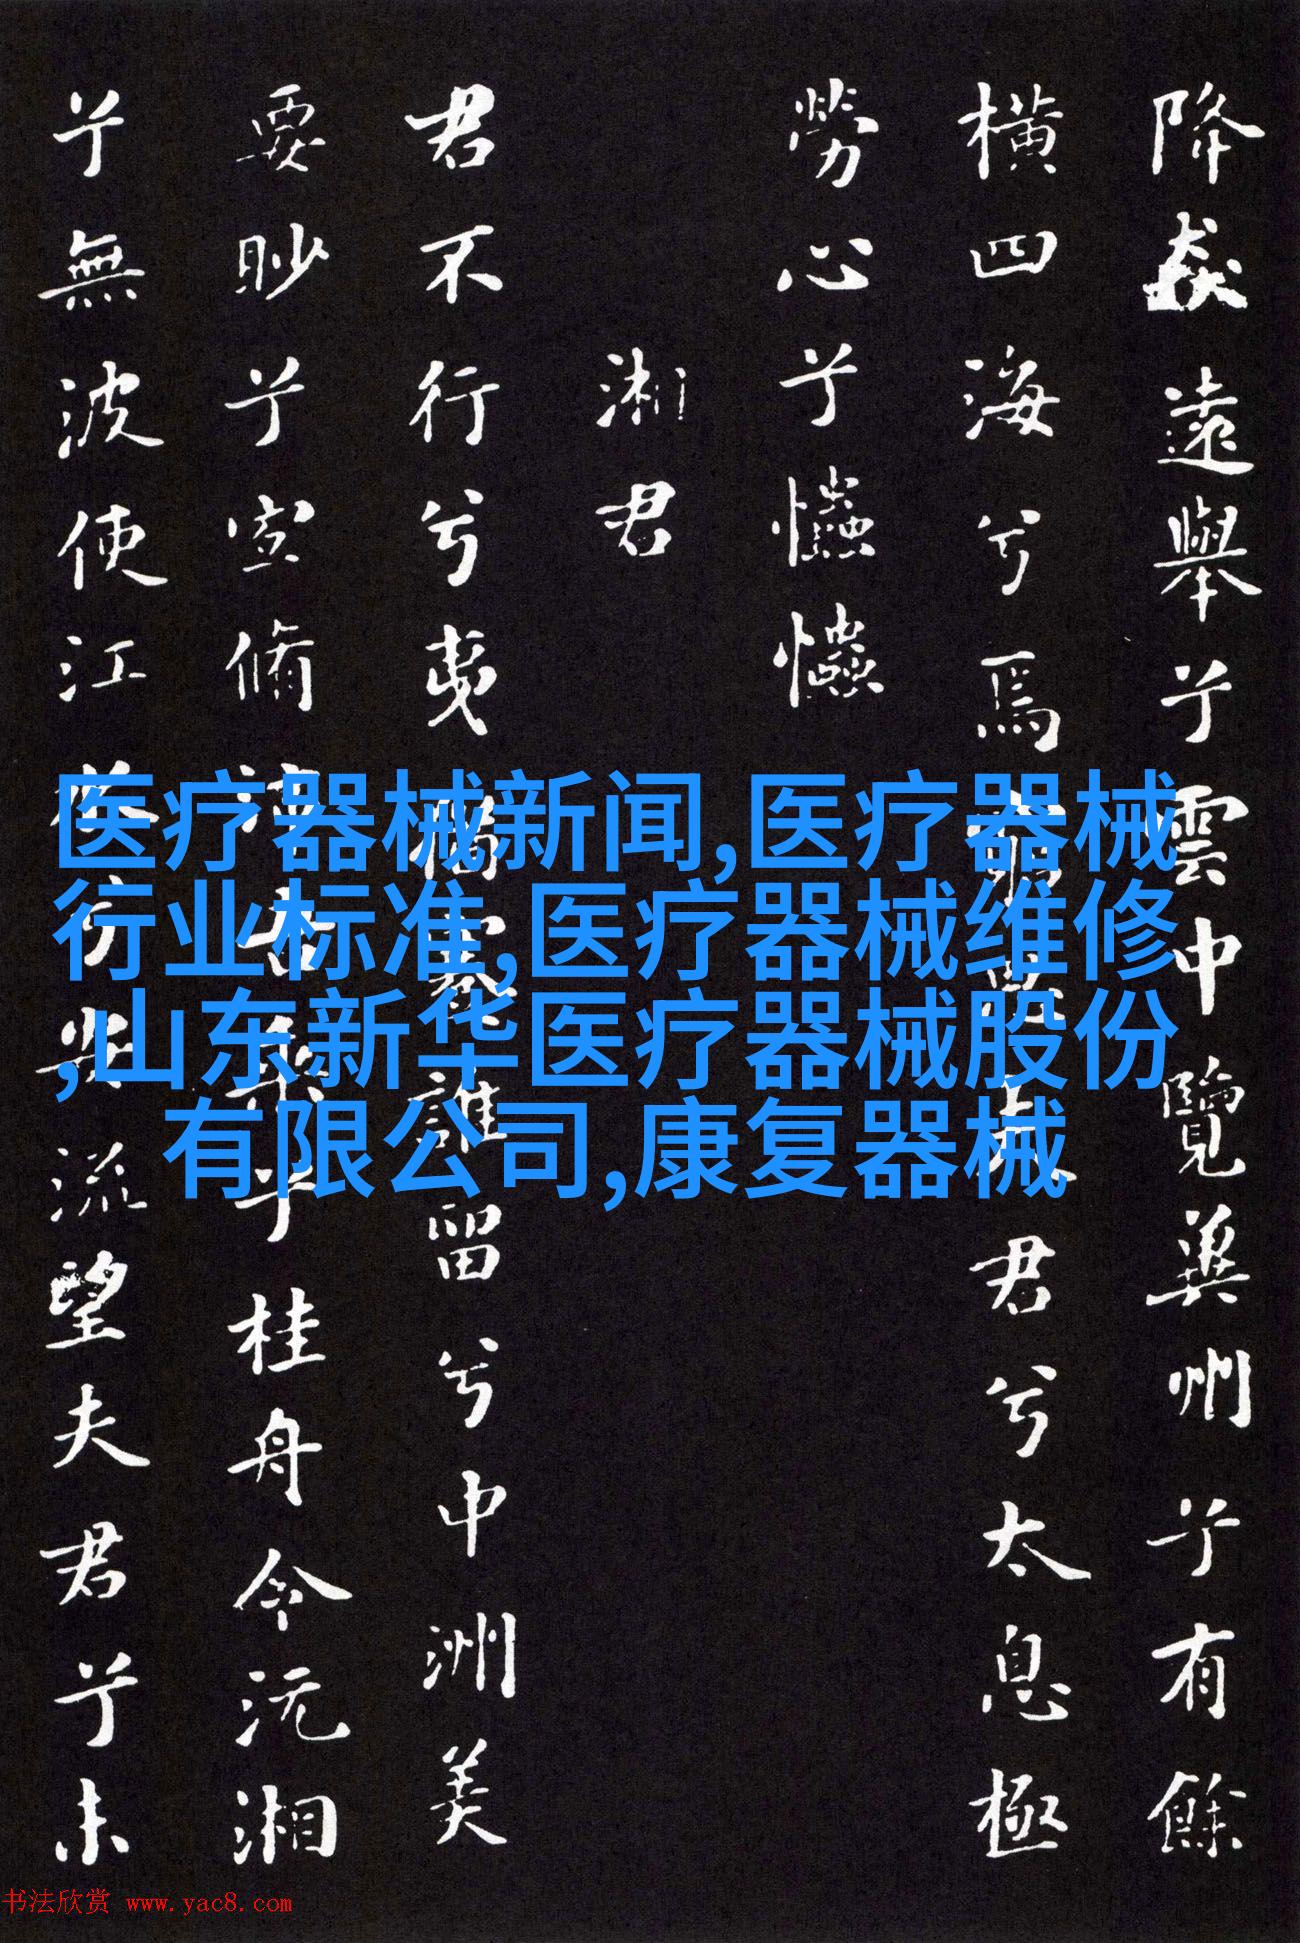 降猋遠舉兮雲中覽兾州兮有餘
橫四海兮焉窮思夫君兮太息極
勞心兮忡忡
湘君
君不行兮夷猶蹇誰留兮中洲美
要眇兮宜脩沛吾乘兮桂舟令沅湘
兮無波使江水兮安流望夫君兮未
医疗器械新闻,医疗器械
行业标准,医疗器械维修
,山东新华医疗器械股份
有限公司,康复器械
书法欣赏 www.yac8.com